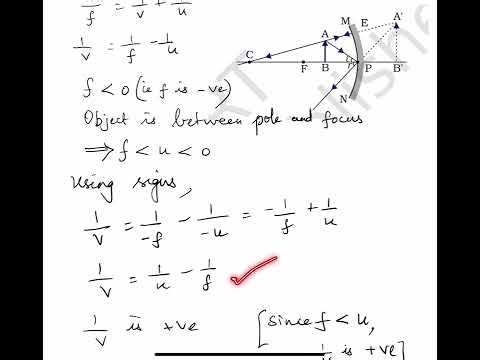 1/f = 1/v + 1/u
1/v = 1/f - 1/u
f < 0 (ie f is -ve)
Object is between pole and focus
⟹ f < u < 0
Using signs,
1/v = 1/-f - 1/-u = -1/f + 1/u
1/v = 1/u - 1/f
1/v is +ve [since f < u,
is +ve]
M E A'
A
C F B P B'
N